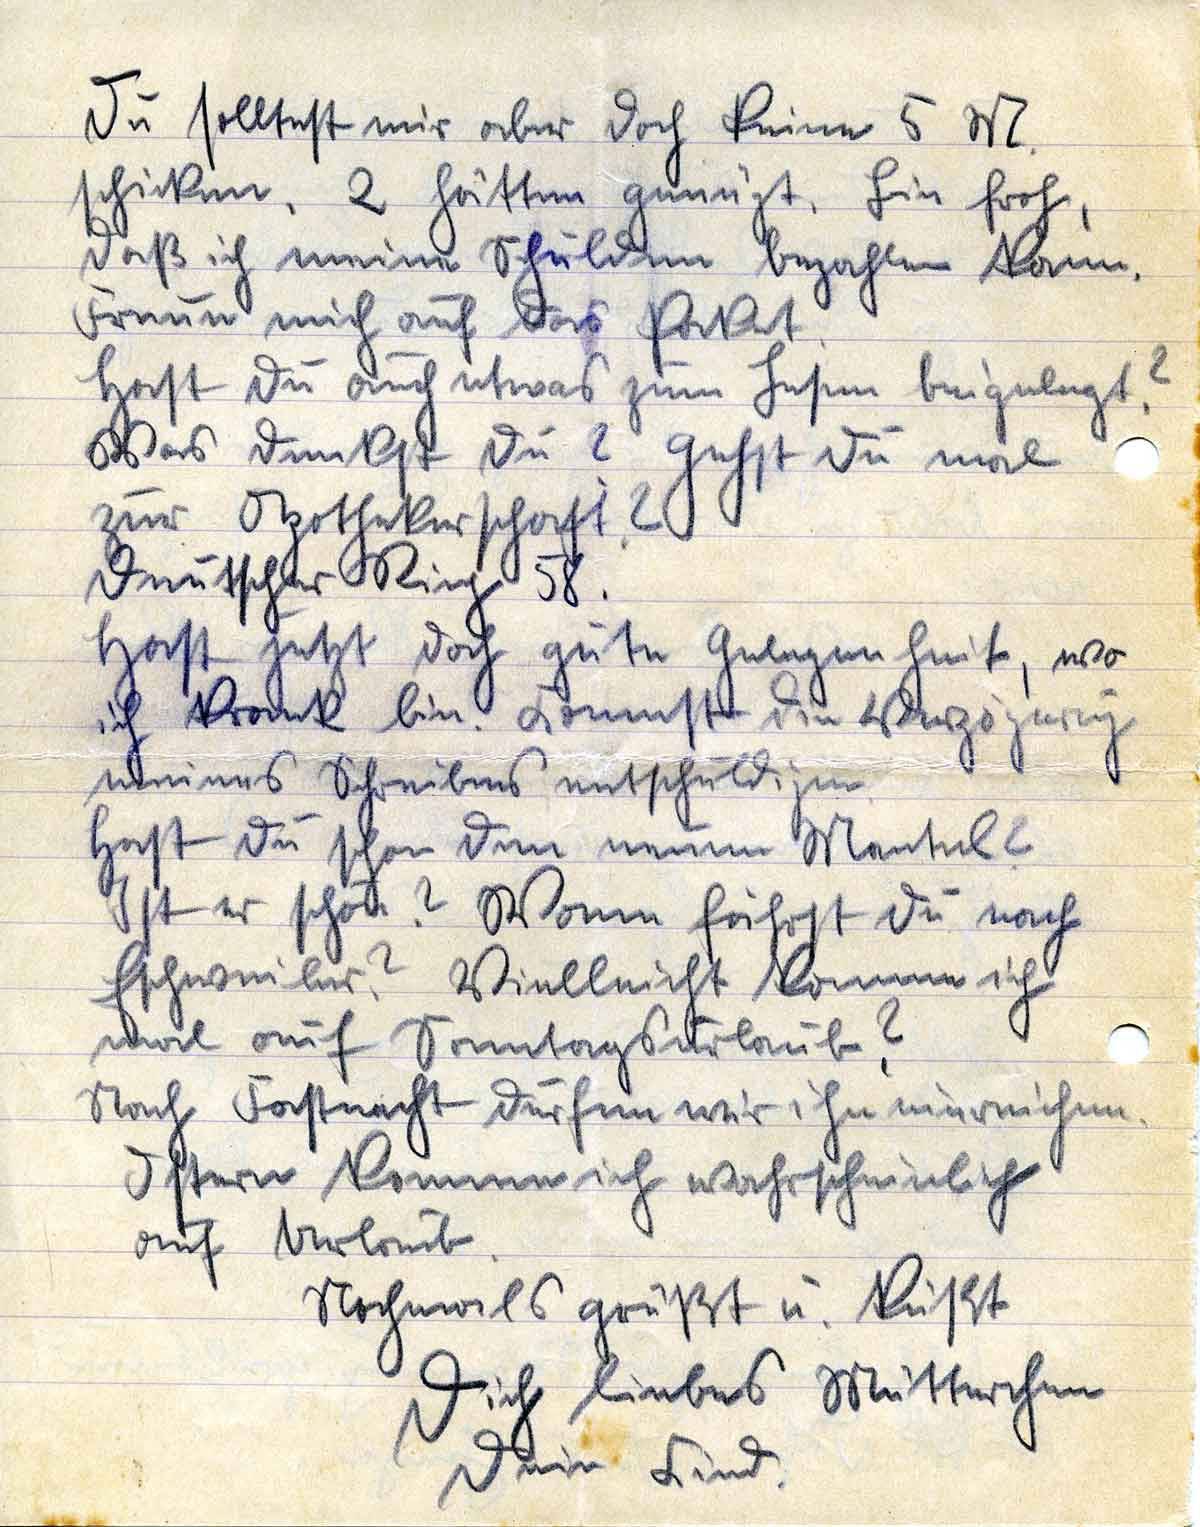 Du solltest mir aber doch keine 5 M.
schicken, 2 hätten genügt. Bin froh,
daß ich meine Schulden bezahlen kann.
Freue mich auf das Paket.
Hast Du auch etwas zum Lesen beigelegt?
Was denkst Du? Gehst Du mal
zur Apothekerschaft?
Deutscher Ring 58.
Hast jetzt doch gute Gelegenheit, wo
ich krank bin. Kannst die Verzögerung
meines Schreibens entschuldigen.
Hast Du schon den neuen Mantel?
Ist er schön? Wann fährst Du nach
Eschweiler? Vielleicht komme ich
mal auf Sonntagsurlaub?
Nach Fastnacht dürfen wir ihn einreichen.
Ostern komme ich wahrscheinlich
auf Urlaub.
Nochmals grüßt u. küßt
Dich liebes Mütterchen
Dein Kind.